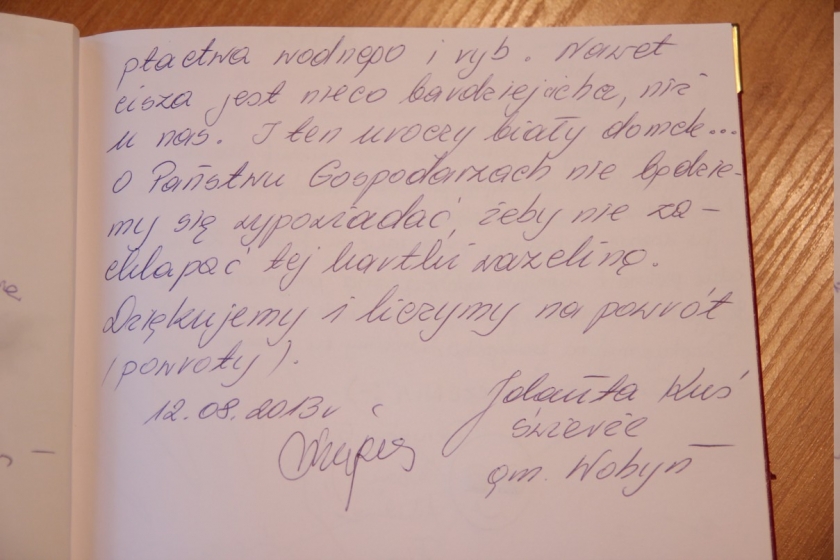 ptactwa wodnego i ryb. Nawet
cisza jest nieco bardziej cicha, niż
u nas. I ten uroczy biały domek...
O Państwu Gospodarzach nie będzie-
my się wypowiadać, żeby nie za-
chlapać tej kartki wazeliną.
Dziękujemy i liczymy na powrót
(powroty).
12.08.2013r
Jolanta Kuś
Świerże
gm. Wohyń